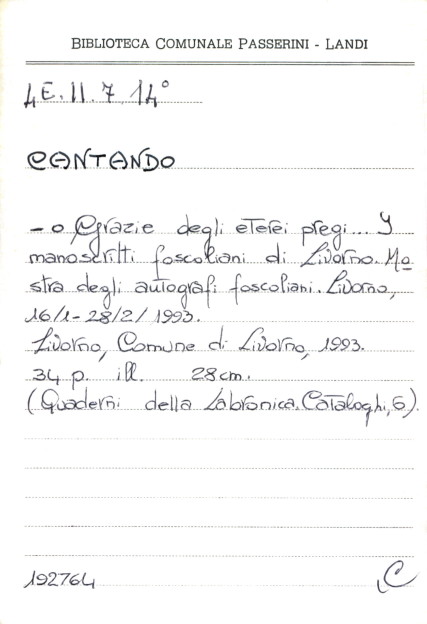 BIBLIOTECA COMUNALE PASSERINI - LANDI
4E.II.7.14°
CANTANDO
- o Grazie degli eterei pregi... I
manoscritti foscoliani di Livorno. Mo
stra degli autografi foscoliani. Livorno,
16/1-28/2/1993.
Livorno, Comune di Livorno, 1993.
34 p. ill. 28cm.
(Quaderni della Labronica. Cataloghi, 6).
192764 C